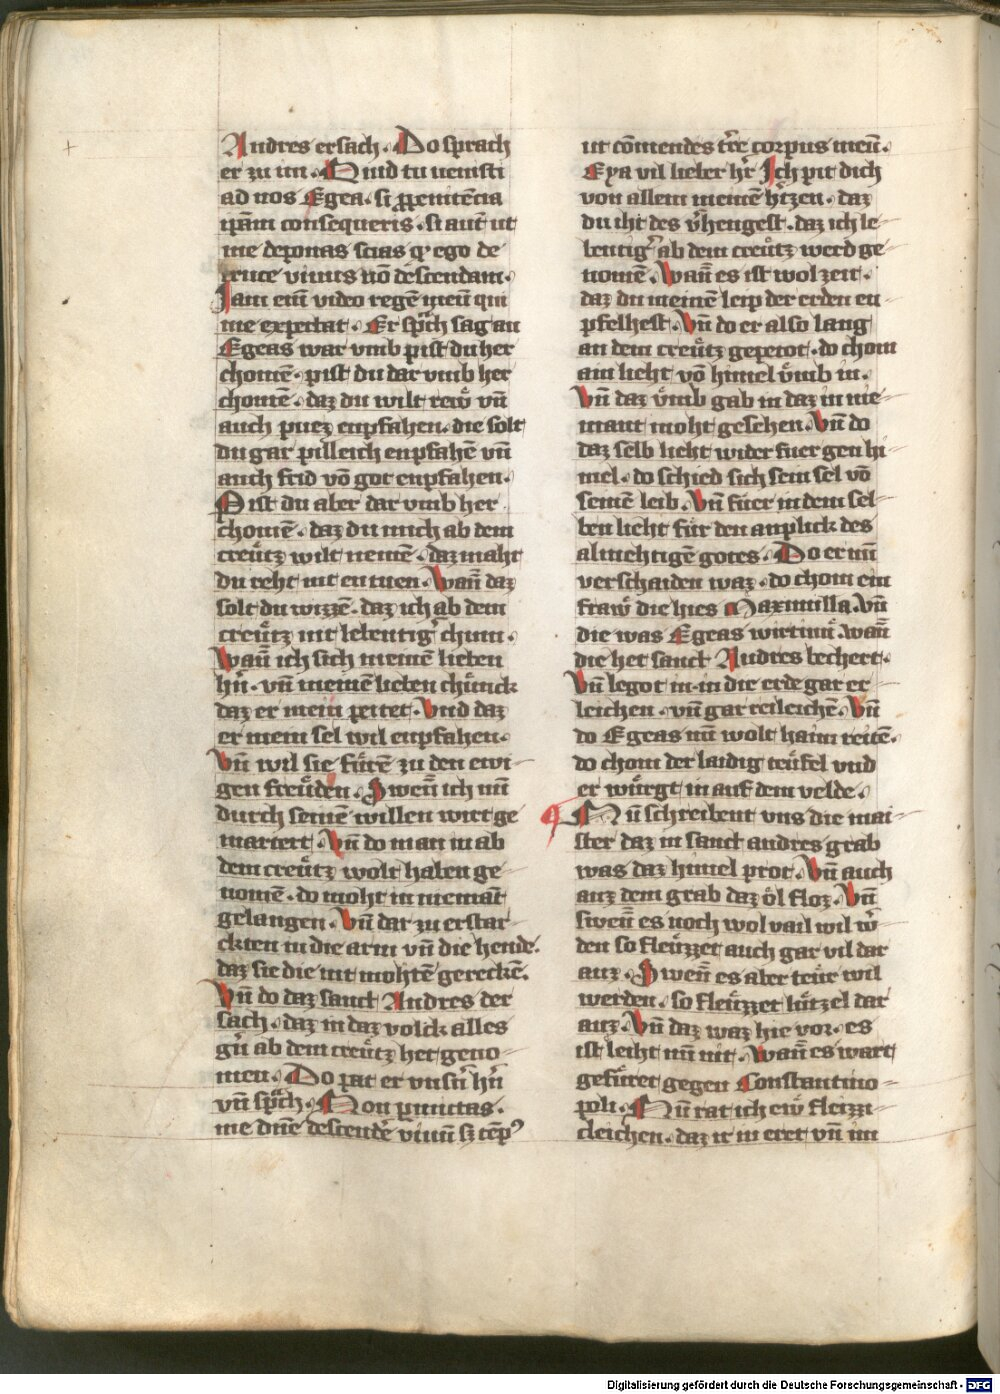 Andres ersach. Do sprach
er zu im. Quid tu uenisti
ad nos Egea. si ꝓpenitẽcia
ip̃am consequeris. si aut̃ ut
me deponas scias qͥ ego de
cruce viuus nõ descendam.
Jam eni̅ video regẽ meu̅ qui
me expectat. Er spͣch sag an
Egeas war vmb pist du her
chomẽ. pist du dar vmb her
chomẽ. daz du wilt rewͤ vn̅
auch puez enpfahen. die solt
du gar pilleich enpfahẽ vn̅
auch frid võ got enpfahen.
Pist du aber dar vmb her
chomẽ. daz du mich ab dem
creuͤtz wilt nemẽ. daz maht
du reht nit entuen. Wan̅ daz
solt du wizzẽ. daz ich ab dem
creuͤtz nit lebentig͛ chum.
Wan̅ ich sich meinẽ lieben
hn͛. vn̅ meinẽ lieben chuͤnck
daz er mein peitet. Vnd daz
er mein sel wil enpfahen.
Vn̅ wil sie fuͤrẽ zu den ewi-
gen freuͤden. Swen̅ ich nu̅
durch seinẽ willen wirt ge
martert. Vn̅ do man in ab
dem creuͤtz wolt haben ge-
nomẽ. do moht in niemãt
gelangen. Vn̅ dar zu erstar-
ckten in die arm vn̅ die hende.
daz sie die nit mohtẽ gereckẽ.
Vn̅ do daz sanct Andres der
sach. daz in daz volck alles
gn͛ ab dem creuͤtz het geno-
men. Do pat er vnsn͛ hn͛
vn̅ spͣch. Non permittas.
me dn̅e descendẽ viuu̅ sꝫ tẽpꝰ
ut cõmendes tr̃e corpus meu̅.
Eya vil lieber hr͛ Ich pit dich
von allem meinẽ h͛tzen. daz
du iht des v͛hengest. daz ich le-
bentig͛ ab dem creuͤtz werd ge
nomẽ. Wan̅ es ist wol zeit.
daz du meinẽ leip der erden en
pfelhest. Vn̅ do er also lang
an dem creuͤtz gepetot. do chom
ain lieht võ himel vͤmb in.
Vn̅ daz vͤmb gab in daz in nie-
mant moht gesehen. Vn̅ do
daz selb lieht wider fuer gen hi-
mel. do schied sich sein sel võ
seinẽ leib. Vn̅ fuer in dem sel-
ben lieht für den anplick des
almehtigẽ gotes. Do er nu̅
verschaiden waz. do chom ein
frawͤ die hies Maximilla. Vn̅
die was Egeas wirtinͤ. wan̅
die het sanct Andres bechert.
Vn̅ legot in in die erde gar er-
leichen. vn̅ gar reileichẽ. Vn̅
do Egeas nu̅ wolt haim reitẽ.
do chom der laidig teuͤfel vnd
er wuͤrgt in auf dem velde.
Nu̅ schreibent vns die mai-
ster daz in sanct andres grab
was daz himel prot. Vn̅ auch
auz dem grab daz oͤl floz. Vn̅
swen̅ es noch wol vail wil w͛-
den so fleuͤzzet auch gar vil dar
auz. Swen̅ es aber teuͤr wil
werden. so fleuͤzzet luͤtzel dar
auz. Vn̅ daz waz hie vor. es
ist leiht nu̅ nit. Wan̅ es wart
gefuͤret gegen Constantino-
poli. Nu̅ rat ich ewͤ fleizzi-
cleichen. daz ir in eret vn̅ im
Digitalisierung gefördert durch die Deutsche Forschungsgemeinschaft - DFG